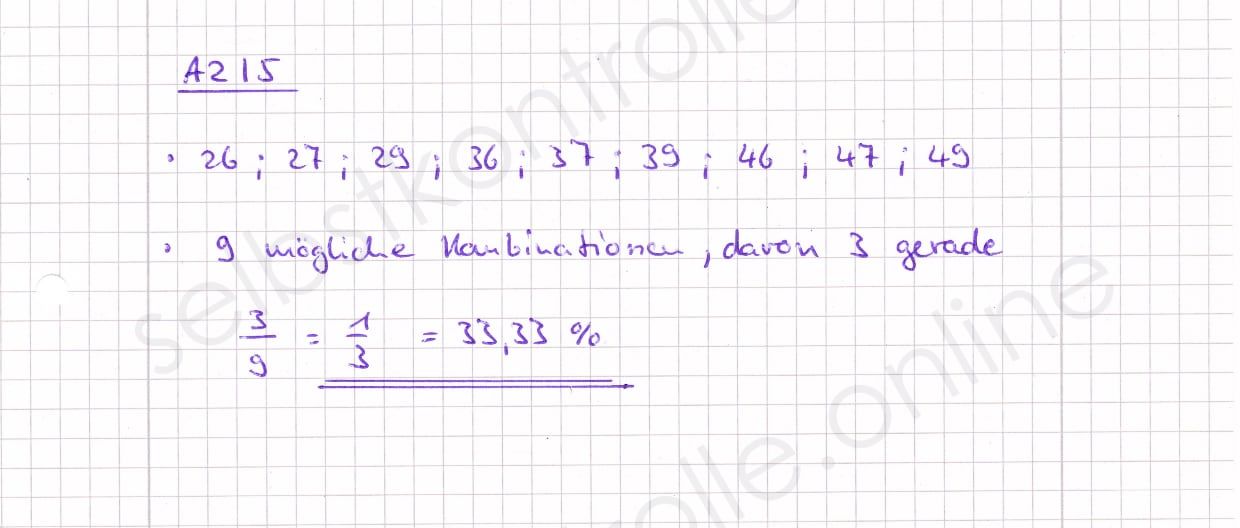 A2 15
• 26 ; 27 ; 29 ; 36 ; 37 ; 39 ; 46 ; 47 ; 49
• 9 mögliche Kombinationen, davon 3 gerade
3/9 = 1/3 = 33,33 %
selbstkontrolle.online